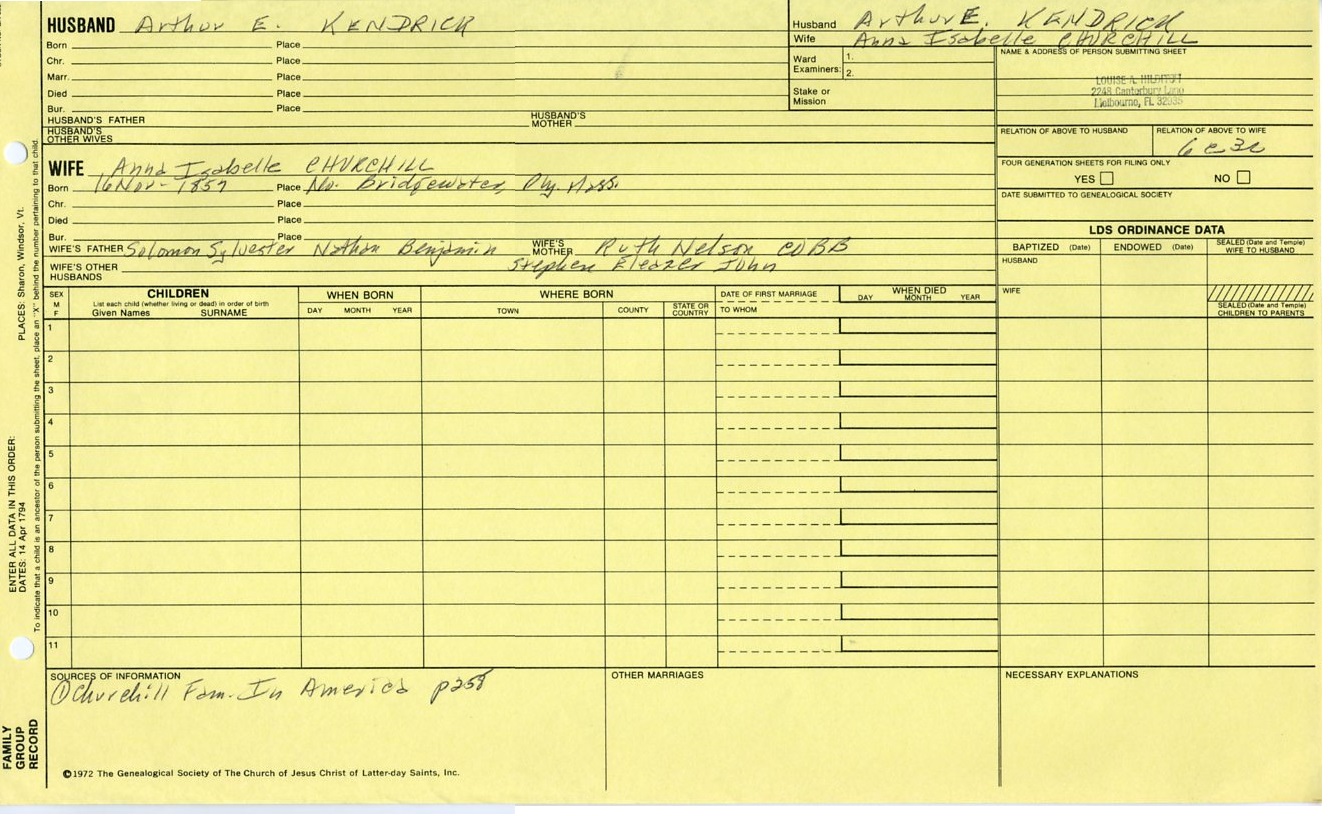 HUSBAND Arthur E. KENDRICK
Born Place
Chr. Place
Marr. Place
Died Place
Bur. Place
HUSBAND'S FATHER HUSBAND'S MOTHER
HUSBAND'S OTHER WIVES
Husband Arthur E. KENDRICK
Wife Anna Isabelle CHURCHILL
Ward Examiners: 1.
2.
Stake or Mission
NAME & ADDRESS OF PERSON SUBMITTING SHEET
LOUISE A.
2248 Canterbury Lane
Melbourne, FL 32935
RELATION OF ABOVE TO HUSBAND RELATION OF ABOVE TO WIFE
6c3r
FOUR GENERATION SHEETS FOR FILING ONLY
YES NO
DATE SUBMITTED TO GENEALOGICAL SOCIETY
WIFE Anna Isabelle CHURCHILL
Born 16 Nov - 1857 Place No. Bridgewater, Ply. Mass.
Chr. Place
Died Place
Bur. Place
WIFE'S FATHER Solomon Sylvester Nathan Benjamin WIFE'S MOTHER Ruth Nelson COBB
Stephen Eleazer John
WIFE'S OTHER HUSBANDS
LDS ORDINANCE DATA
BAPTIZED (Date) ENDOWED (Date) SEALED (Date and Temple) WIFE TO HUSBAND
HUSBAND
WIFE
SEALED (Date and Temple) CHILDREN TO PARENTS
SEX M F
CHILDREN
List each child (whether living or dead) in order of birth
Given Names SURNAME
WHEN BORN
DAY MONTH YEAR
WHERE BORN
TOWN COUNTY STATE OR COUNTRY
DATE OF FIRST MARRIAGE
TO WHOM
WHEN DIED
DAY MONTH YEAR
1
2
3
4
5
6
7
8
9
10
11
SOURCES OF INFORMATION
① Churchill Fam. In America p258
OTHER MARRIAGES
NECESSARY EXPLANATIONS
©1972 The Genealogical Society of The Church of Jesus Christ of Latter-day Saints, Inc.
FAMILY GROUP RECORD
ENTER ALL DATA IN THIS ORDER:
DATES: 14 Apr 1794
PLACES: Sharon, Windsor, Vt.
To indicate that a child is an ancestor of the person submitting the sheet, place an "X" behind the number pertaining to that child.